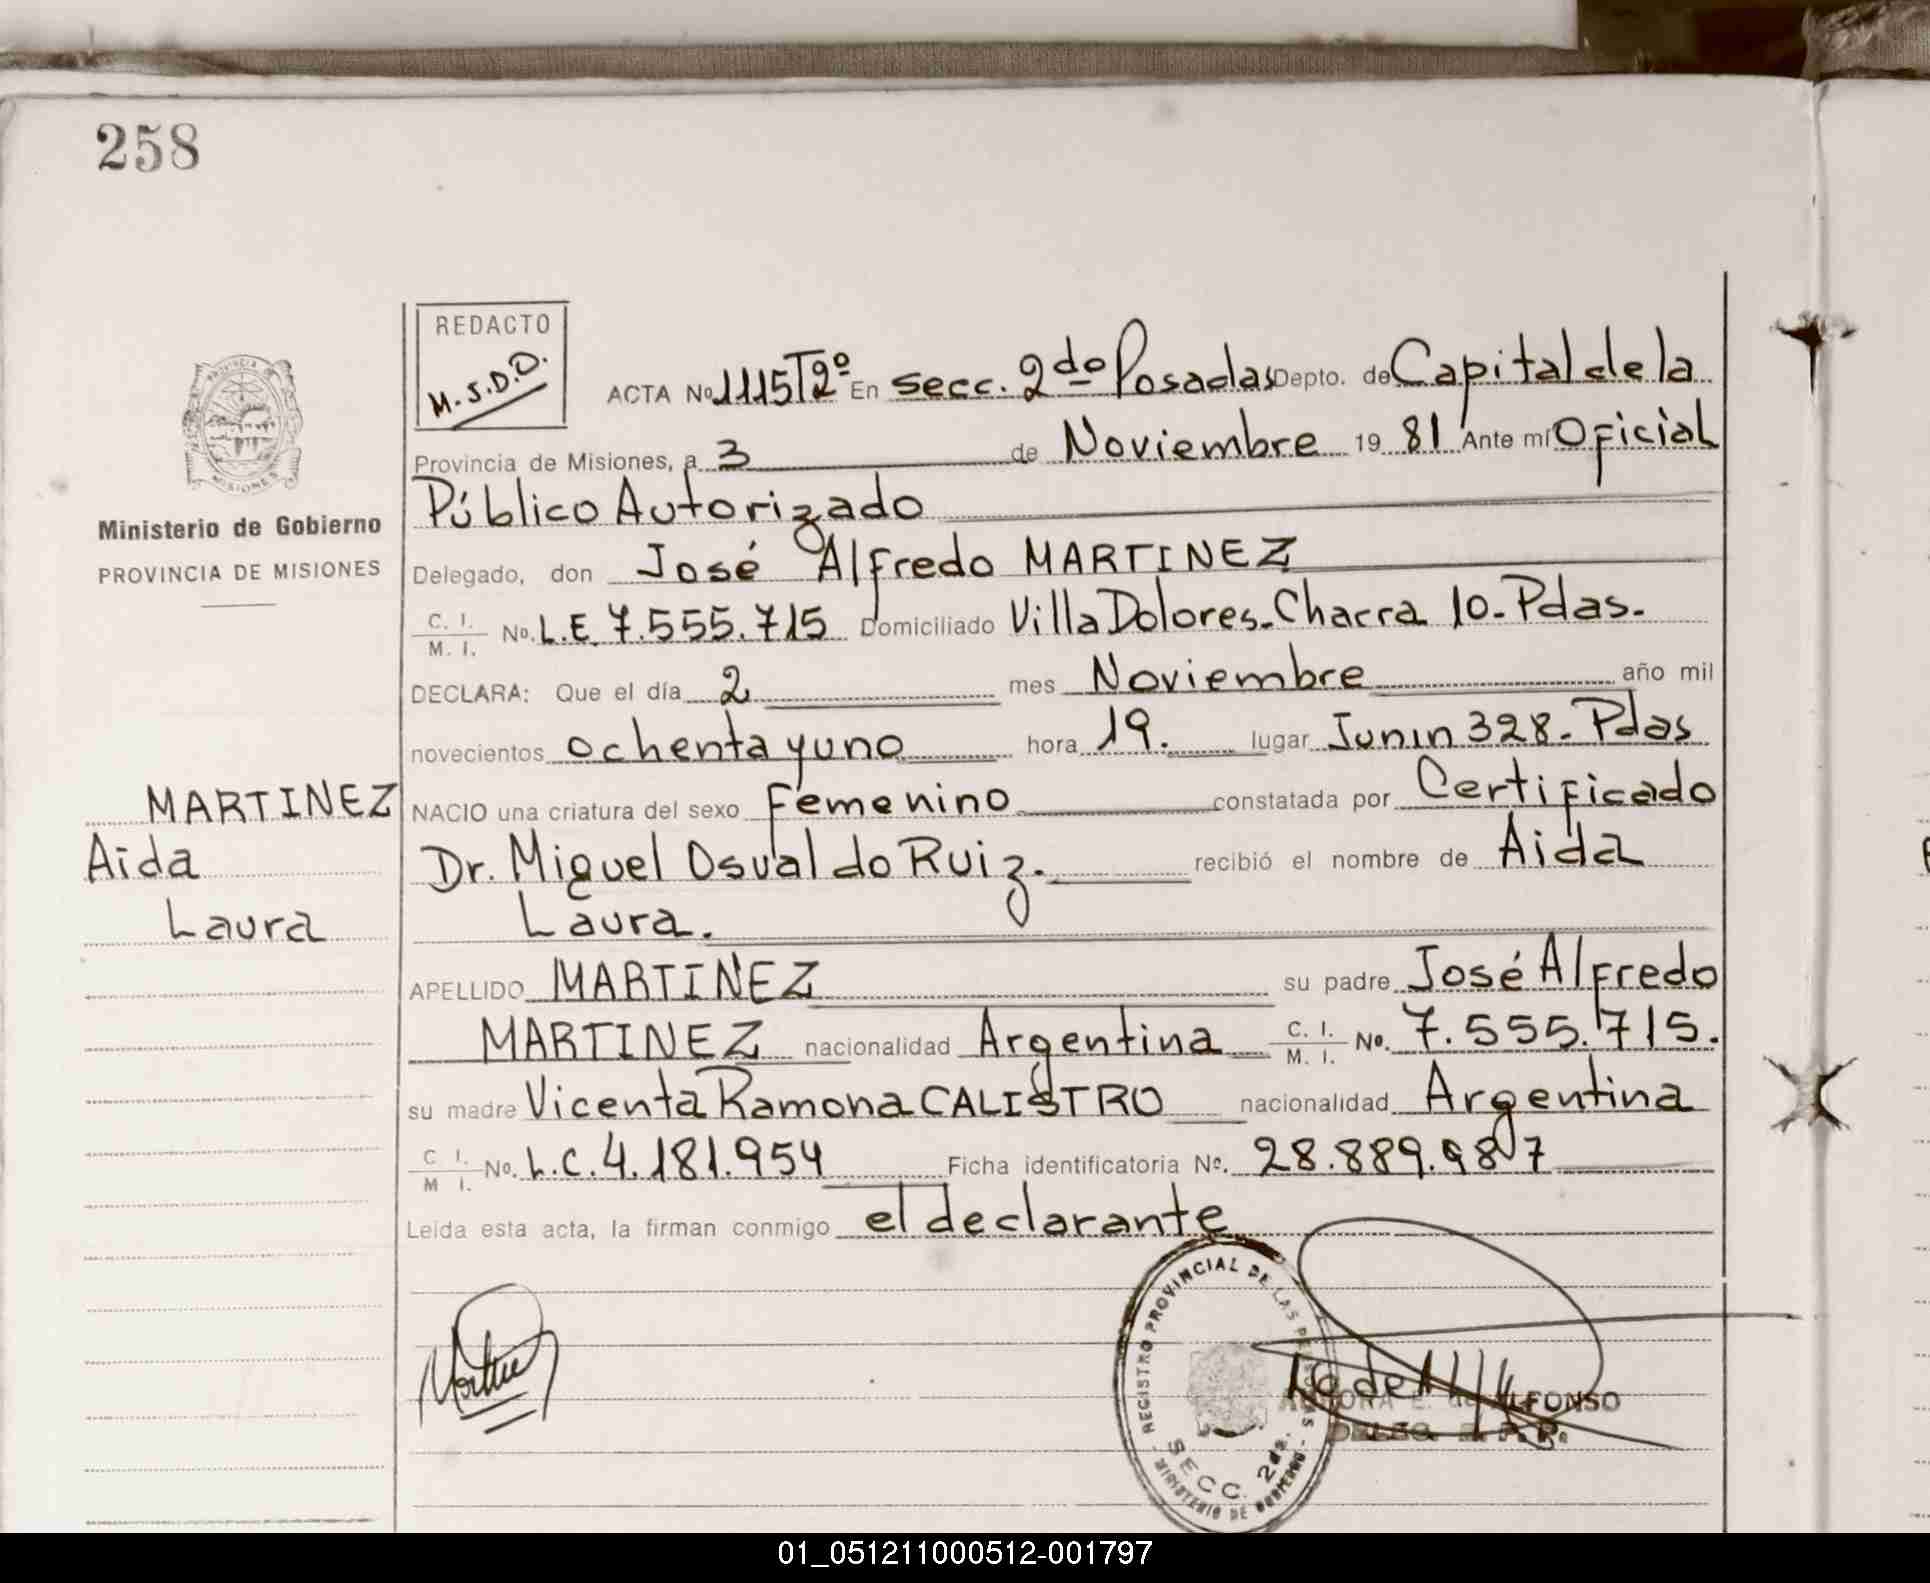 258
REDACTO
M.S.D.D.
PROVINCIA DE
MISIONES
Ministerio de Gobierno
PROVINCIA DE MISIONES
MARTINEZ
Aida
Laura
ACTA No 1115 T2º En secc. 2do Posadas Depto. de Capital de la
Provincia de Misiones, a 3 de Noviembre 19 81 Ante mí Oficial
Público Autorizado
Delegado, don José Alfredo MARTINEZ
C. I. M. I. No. L.E. 7.555.715 Domiciliado Villa Dolores-Chacra 10-Pdas.
DECLARA: Que el día 2 mes Noviembre año mil
novecientos ochenta y uno hora 19. lugar Junin 328.- Pdas
NACIO una criatura del sexo Femenino constatada por Certificado
Dr. Miguel Osvaldo Ruiz. recibió el nombre de Aida
Laura.
APELLIDO MARTINEZ su padre José Alfredo
MARTINEZ nacionalidad Argentina C. I. M. I. No. 7.555.715.
su madre Vicenta Ramona CALISTRO nacionalidad Argentina
C. I. M. I. No. L.C. 4.181.954 Ficha identificatoria No. 28.889.987
Leida esta acta, la firman conmigo el declarante
REGISTRO PROVINCIAL DE LAS PERSONAS - MINISTERIO DE GOBIERNO -
SECC. 2da.
E. de ALFONSO
DELEG. R. P. P.
01_051211000512-001797